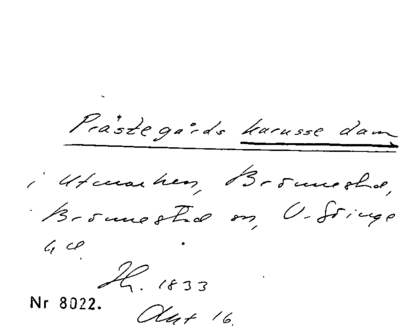 Prästegårds karusse dam
i Utmarken, Brönnestad,
Brönnestad sn, V. Göinge
hd.
Th. 1833
Akt 16.
Nr 8022.